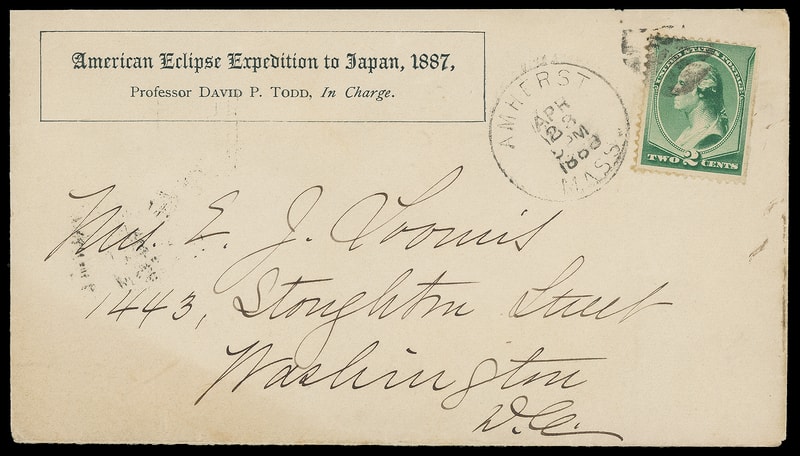 American Eclipse Expedition to Japan, 1887,
Professor DAVID P. TODD, In Charge.
AMHERST
APR
1888
MASS
UNITED STATES POSTAGE
TWO 2 CENTS
Mrs. E. J. Loomis
1443, Stoughton Street
Washington
D.C.